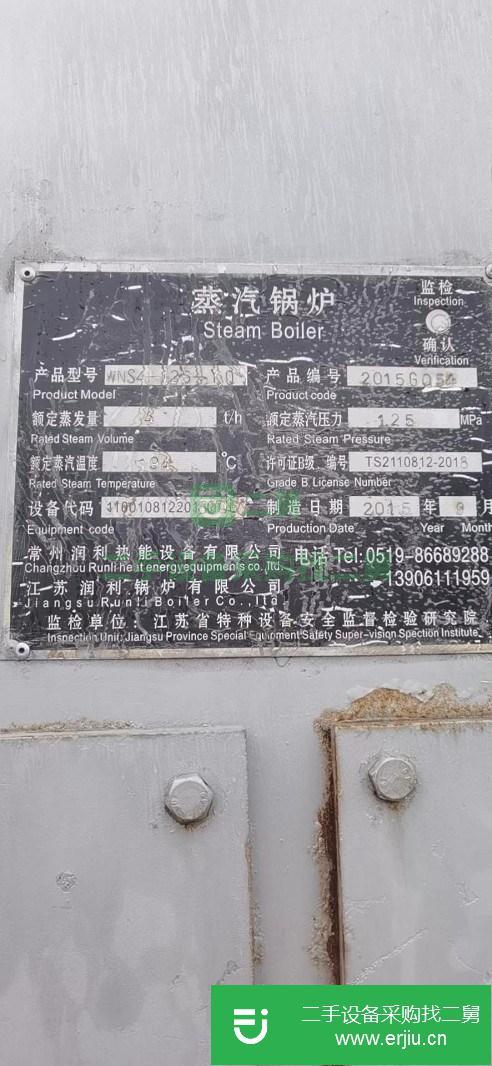 蒸汽锅炉
Steam Boiler
监检
Inspection
确认
Verification
产品型号
Product Model
产品编号 2015G054
Product code
额定蒸发量 4 t/h
Rated Steam Volume
额定蒸汽压力 1.25 MPa
Rated Steam Pressure
额定蒸汽温度 194 ℃
Rated Steam Temperature
许可证B级、编号 TS2110812-2018
Grade B License Number
设备代码
Equipment code
制造日期 2015 年 9 月
Production Date Year Month
常州润利热能设备有限公司 电话Tel:0519-86689288
Changzhou Runli heat energy equipments co., ltd.
江苏润利锅炉有限公司 13906111959
Jiangsu Runli Boiler Co., ltd
监检单位：江苏省特种设备安全监督检验研究院
Inspection Unit: Jiangsu Province Special Equipment Safety Super-vision Spection Institute
二手设备采购找二舅
www.erjiu.cn